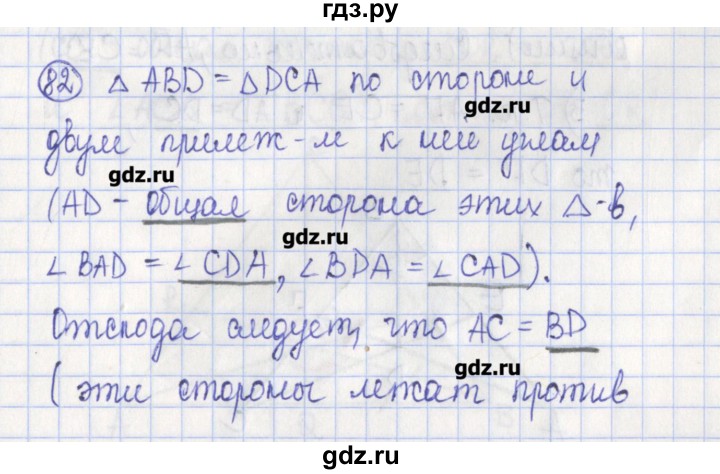 гдз.ру
82 △ ABD = △ DCA по стороне и
gdz.ru
двум прилеж-м к ней углам
gdz.ru
(AD - общая сторона этих △-в,
gdz.ru
∠ BAD = ∠ CDA, ∠ BDA = ∠ CAD).
Отсюда следует, что AC = BD
gdz.ru
(эти стороны лежат против